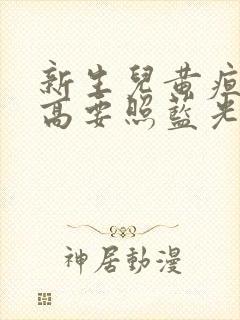 新生兒黃疸
高要照藍光
神居動漫